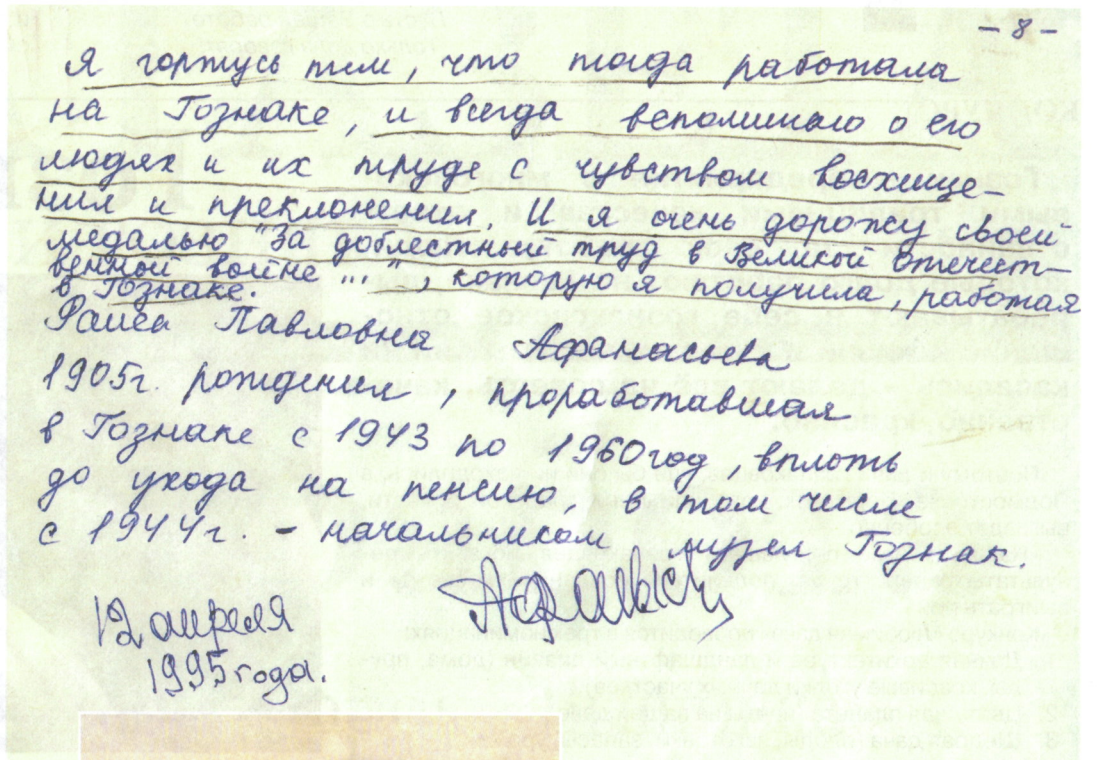 - 8 -
Я горжусь тем, что тогда работала
на Гознаке, и всегда вспоминаю о его
людях и их труде с чувством восхище-
ния и преклонения. И я очень дорожу своей
медалью "За доблестный труд в Великой Отечест-
венной войне "..." , которую я получила, работая
в Гознаке.
Раиса Павловна Афанасьева
1905г рождения, проработавшая
в Гознаке с 1943 по 1960 год вплоть
до ухода на пенсию, в том числе
с 1944г. - начальником музея Гознак.
12 апреля
1995 года.